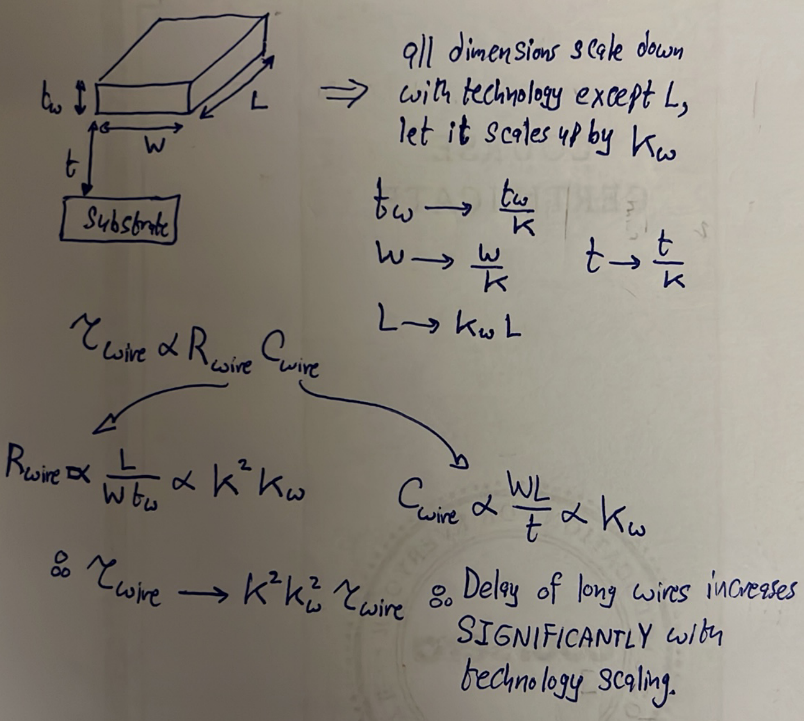 all dimensions scale down
with technology except L,
let it scales up by Kω
tω
W
L
t
Substrate
tω → tω/K
W → W/K t → t/K
L → Kω L
τwire ∝ Rwire Cwire
Rwire ∝ L/(W tω) ∝ K² Kω
Cwire ∝ WL/t ∝ Kω
∴ τwire → K² Kω² τwire ∴ Delay of long wires increases
SIGNIFICANTLY with
technology scaling.